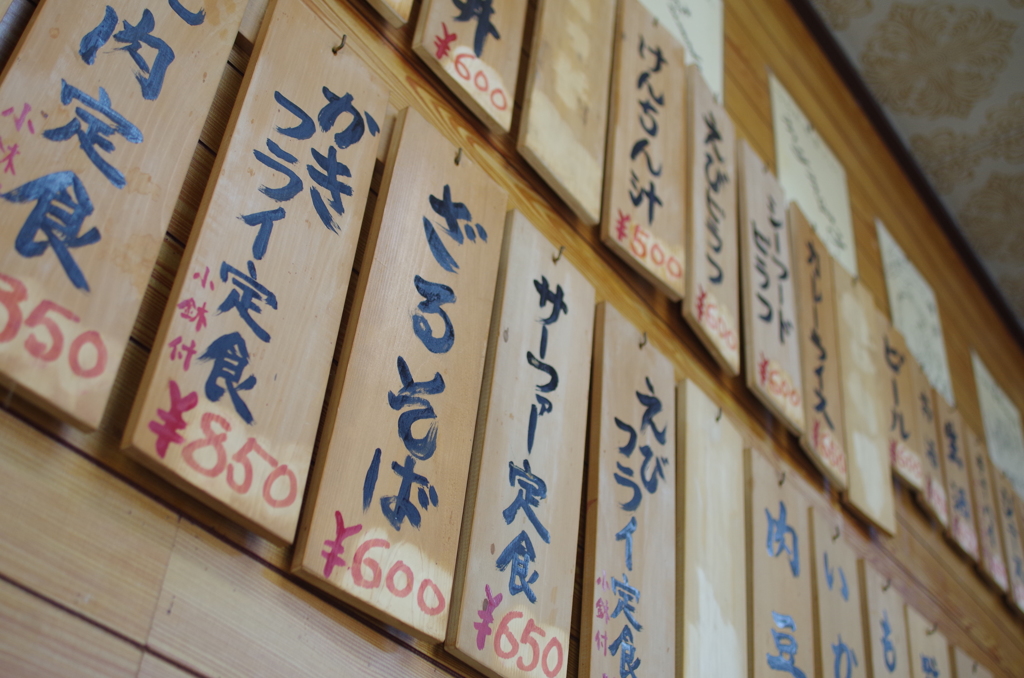 肉定食
小鉢
850
かき
フライ定食
小鉢付
¥850
ざるそば
¥600
サーファー定食
¥650
えび
フライ定食
小鉢付
肉豆
いか
も
丼
¥600
けんちん汁
¥500
えびピラフ
¥600
シーフード
ピラフ
¥600
カレーライス
¥600
ビール
¥600